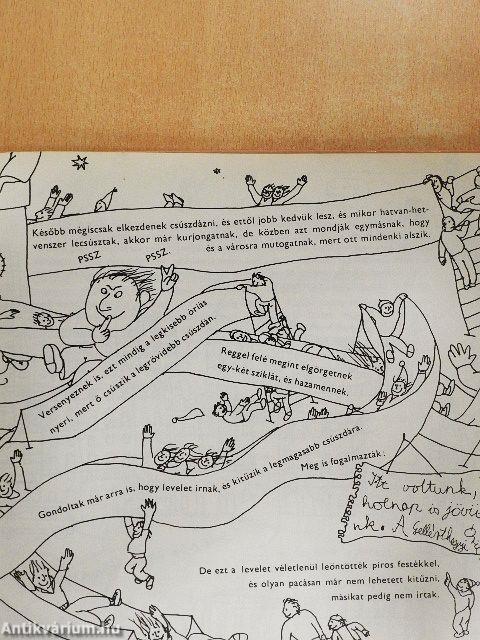 Később mégiscsak elkezdenek csúszdázni, és ettől jobb kedvük lesz, és mikor hatvan-het-
venszer lecsúsztak, akkor már kurjongatnak, de közben azt mondják egymásnak, hogy
PSSZ PSSZ. és a városra mutogatnak, mert ott mindenki alszik.
Versenyeznek is, ezt mindig a legkisebb óriás
nyeri, mert ő csúszik a legrövidebb csúszdán.
Reggel felé megint elgörgetnek
egy-két sziklát, és hazamennek.
Gondoltak már arra is, hogy levelet írnak, és kitűzik a legmagasabb csúszdára.
Meg is fogalmazták:
Itt voltunk,
holnap is jövü
nk. A Gellérthegyi
De ezt a levelet véletlenül leöntötték piros festékkel,
és olyan pacásan már nem lehetett kitűzni,
másikat pedig nem írtak.
Antikvárium.hu